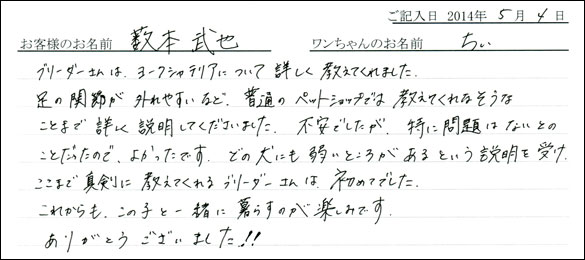 ご記入日 2014年 5月 4日
お客様のお名前 薮本 武也 ワンちゃんのお名前 ちぃ
ブリーダーさんは、ヨークシャテリアについて詳しく教えてくれました。
足の関節が外れやすいなど、普通のペットショップでは教えてくれなそうな
ことまで詳しく説明してくださいました。不安でしたが、特に問題はないとの
ことだったので、よかったです。どの犬にも弱いところがあるという説明を受け、
ここまで真剣に教えてくれるブリーダーさんは、初めてでした。
これからも、この子と一緒に暮らすのが楽しみです。
ありがとうございました!!